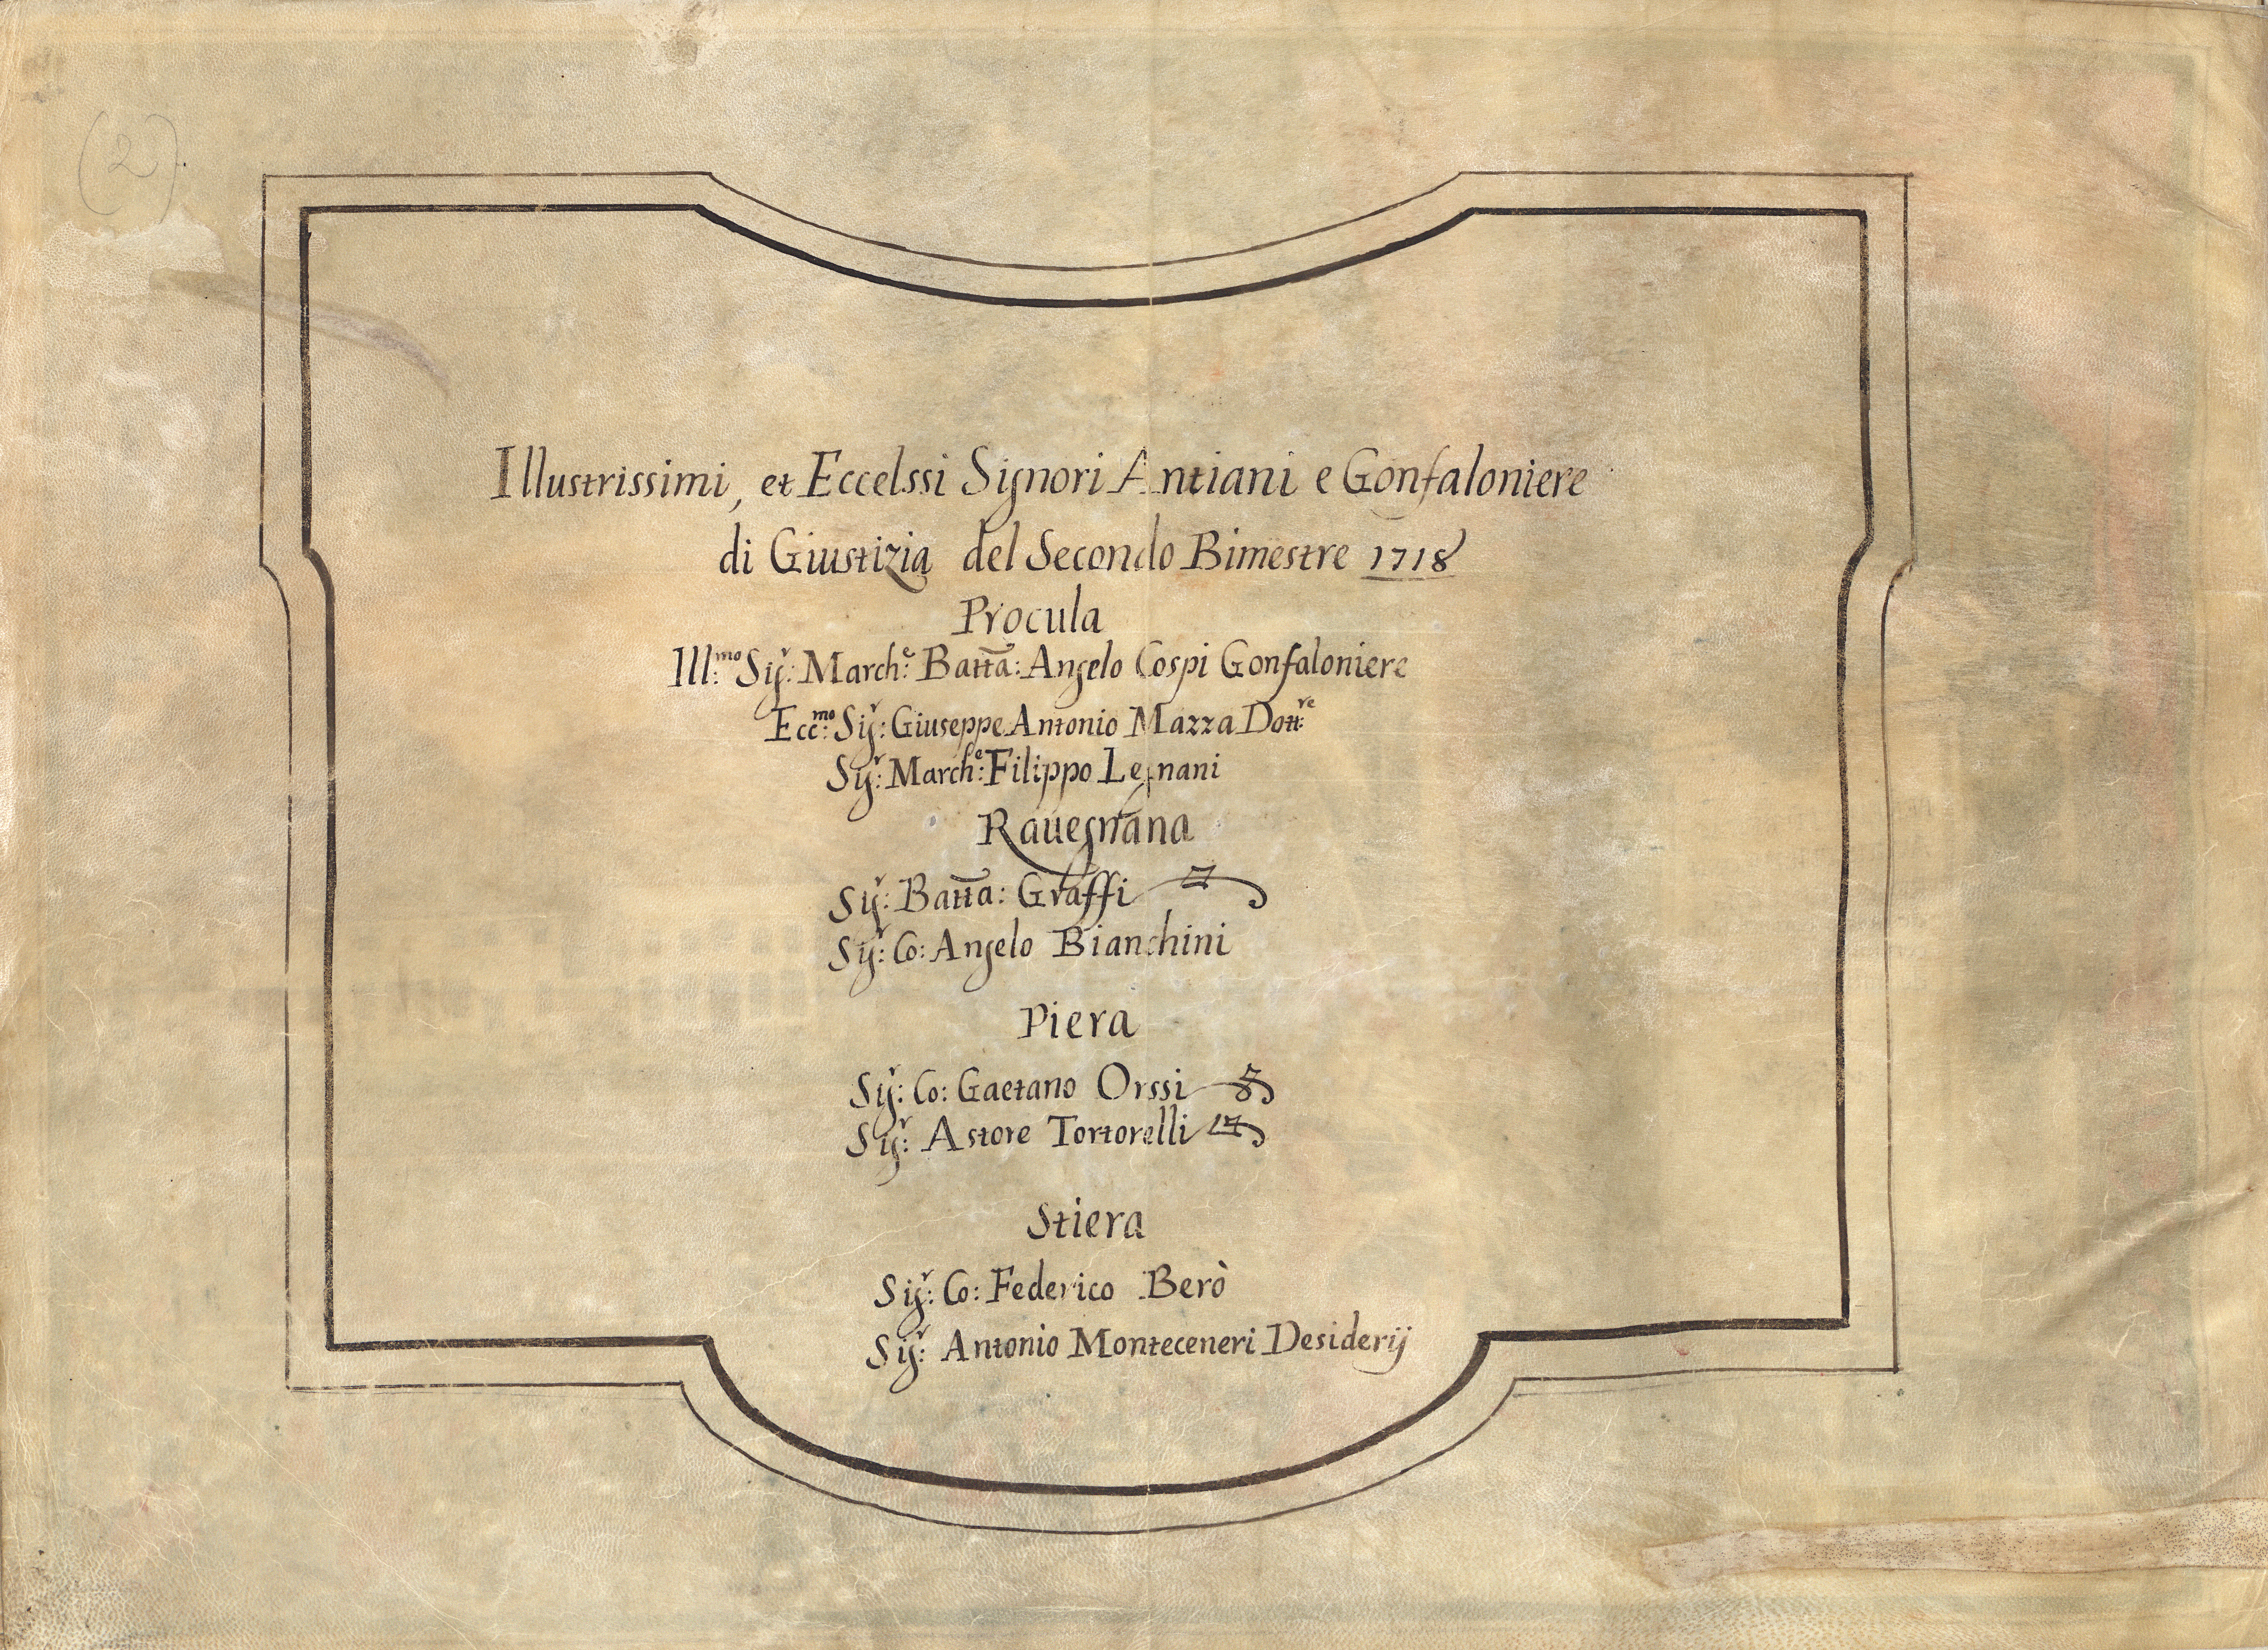 (2)
Illustrissimi, et Eccelssi Signori Antiani e Gonfaloniere
di Giustizia del Secondo Bimestre 1718
Procula
Ill:mo Sig:r March:e Batta: Angelo Cospi Gonfaloniere
Ecc:mo Sig:r Giuseppe Antonio Mazza Dott:re
Sig:r March:e Filippo Legnani
Rauegnana
Sig:r Batta: Graffi
Sig:r Co: Angelo Bianchini
Piera
Sig:r Co: Gaetano Orssi
Sig:r Astore Tortorelli
Stiera
Sig:r Co: Federico Berò
Sig:r Antonio Monteceneri Desiderij